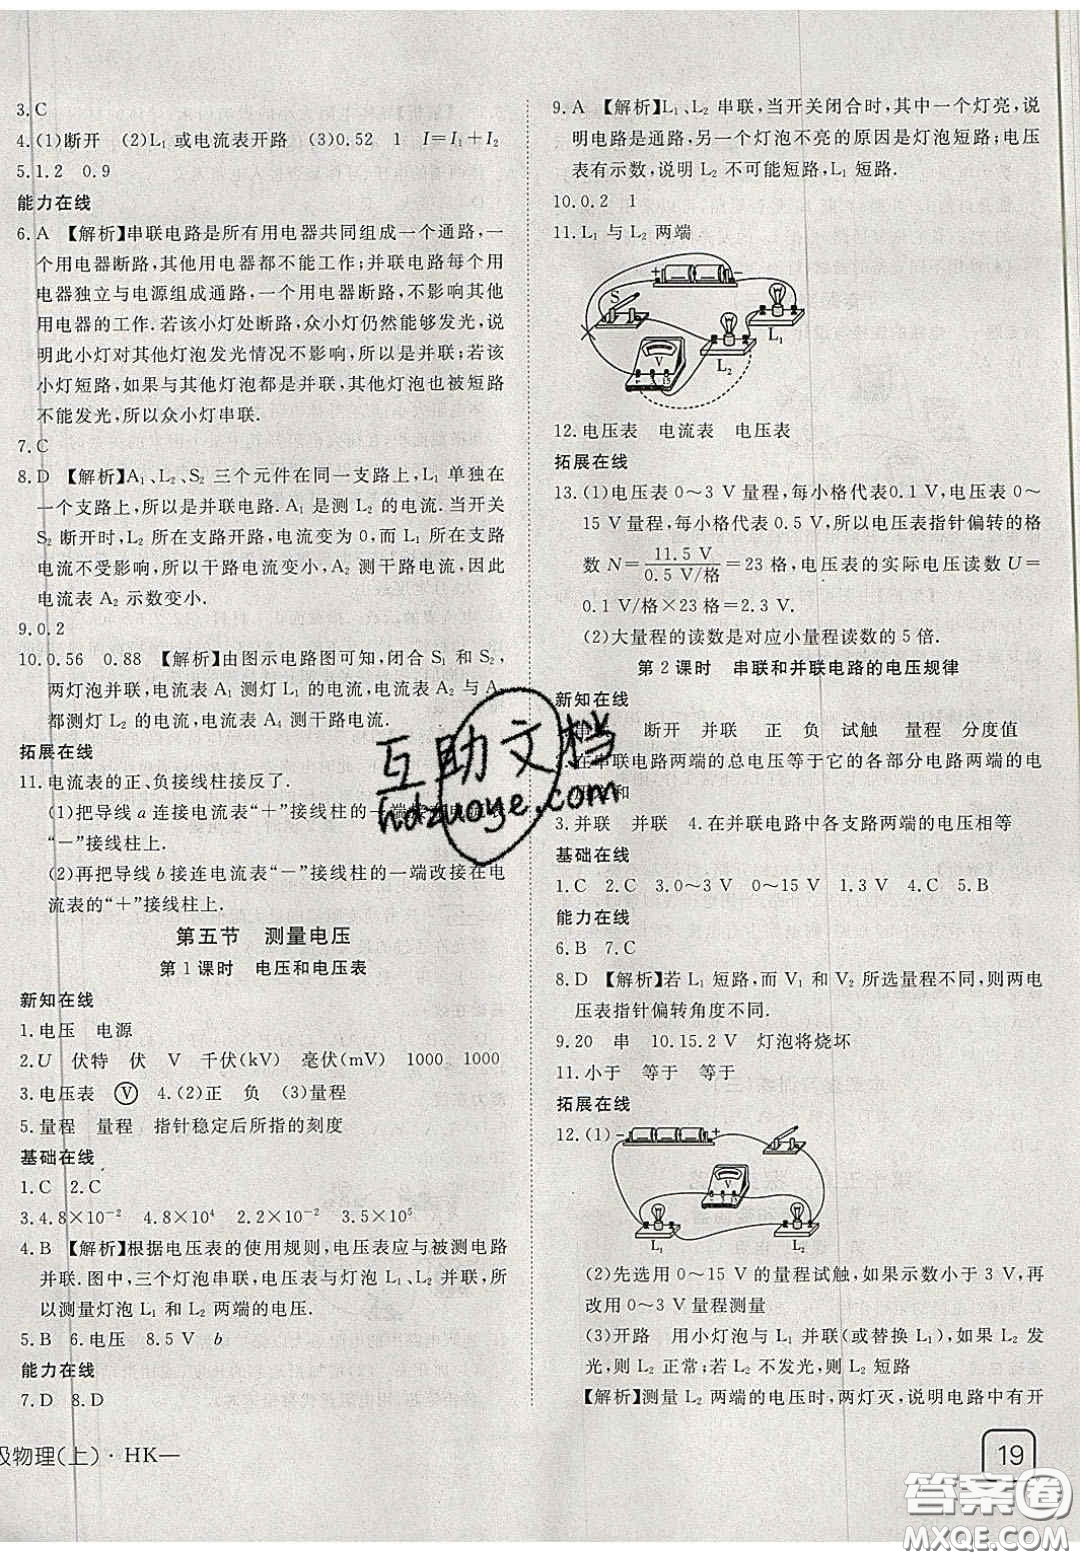 3.C
4.(1)断开 (2)L₁ 或电流表开路 (3)0.52 1 I=I₁+I₂
5.1.2 0.9
能力在线
6.A 【解析】串联电路是所有用电器共同组成一个通路，一
个用电器断路，其他用电器都不能工作；并联电路每个用
电器独立与电源组成通路，一个用电器断路，不影响其他
用电器的工作.若该小灯处断路，众小灯仍然能够发光，说
明此小灯对其他灯泡发光情况不影响，所以是并联；若该
小灯短路，如果与其他灯泡是并联，其他灯泡也被短路
不能发光，所以众小灯串联.
7.C
8.D 【解析】A₁、L₂、S₂ 三个元件在同一支路上，L₁ 单独在
一个支路上，所以是并联电路.A₁ 是测 L₂ 的电流.当开关
S₂ 断开时，L₂ 所在支路开路，电流变为 0，而 L₁ 所在支路
电流不受影响，所以干路电流变小，A₂ 测干路电流，因此
电流表 A₂ 示数变小.
9.0.2
10.0.56 0.88 【解析】由图示电路图可知，闭合 S₁ 和 S₂，
两灯泡并联，电流表 A₁ 测灯 L₁ 的电流，电流表 A₂ 与 A
都测灯 L₂ 的电流，电流表 A₁ 测干路电流.
拓展在线
11.电流表的正、负接线柱接反了.
(1)把导线 a 连接电流表“＋”接线柱的一端
“－”接线柱上.
(2)再把导线 b 接连电流表“－”接线柱的一端改接在电
流表的“＋”接线柱上.
第五节 测量电压
第 1 课时 电压和电压表
新知在线
1.电压 电源
2.U 伏特 伏 V 千伏(kV) 毫伏(mV) 1000 1000
3.电压表 Ⓥ 4.(2)正 负 (3)量程
5.量程 量程 指针稳定后所指的刻度
基础在线
1.C 2.C
3.4.8×10⁻² 4.8×10⁴ 2.2×10⁻² 3.5×10⁵
4.B 【解析】根据电压表的使用规则，电压表应与被测电路
并联.图中，三个灯泡串联，电压表与灯泡 L₁、L₂ 并联，所
以测量灯泡 L₁ 和 L₂ 两端的电压.
5.B 6.电压 8.5 V b
能力在线
7.D 8.D
级物理(上)·HK—
9.A 【解析】L₁、L₂ 串联，当开关闭合时，其中一个灯亮，说
明电路是通路，另一个灯泡不亮的原因是灯泡短路；电压
表有示数，说明 L₂ 不可能短路，L₁ 短路.
10.0.2 1
11.L₁ 与 L₂ 两端
－ ＋
S
V
－ 3 15
L₁
L₂
12.电压表 电流表 电压表
拓展在线
13.(1)电压表 0～3 V 量程，每小格代表0.1 V，电压表 0～
15 V 量程，每小格代表 0.5 V，所以电压表指针偏转的格
数 N＝11.5 V/0.5 V/格＝23 格，电压表的实际电压读数 U＝
0.1 V/格×23 格＝2.3 V.
(2)大量程的读数是对应小量程读数的 5 倍.
第 2 课时 串联和并联电路的电压规律
新知在线
断开 并联 正 负 试触 量程 分度值
2.在串联电路两端的总电压等于它的各部分电路两端的电
压之和
3.并联 并联 4.在并联电路中各支路两端的电压相等
基础在线
1.C 2.C 3.0～3 V 0～15 V 1.3 V 4.C 5.B
能力在线
6.B 7.C
8.D 【解析】若 L₁ 短路，而 V₁ 和 V₂ 所选量程不同，则两电
压表指针偏转角度不同.
9.20 串 10.15.2 V 灯泡将烧坏
11.小于 等于 等于
拓展在线
12.(1) － ＋
V
L₁ L₂
(2)先选用 0～15 V 的量程试触，如果示数小于 3 V，再
改用 0～3 V 量程测量
(3)开路 用小灯泡与 L₁ 并联(或替换 L₁)，如果 L₂ 发
光，则 L₂ 正常；若 L₂ 不发光，则 L₂ 短路
【解析】测量 L₂ 两端的电压时，两灯灭，说明电路中有开
19
互助文档
hdzuoye.com
答案圈
MXQE.COM